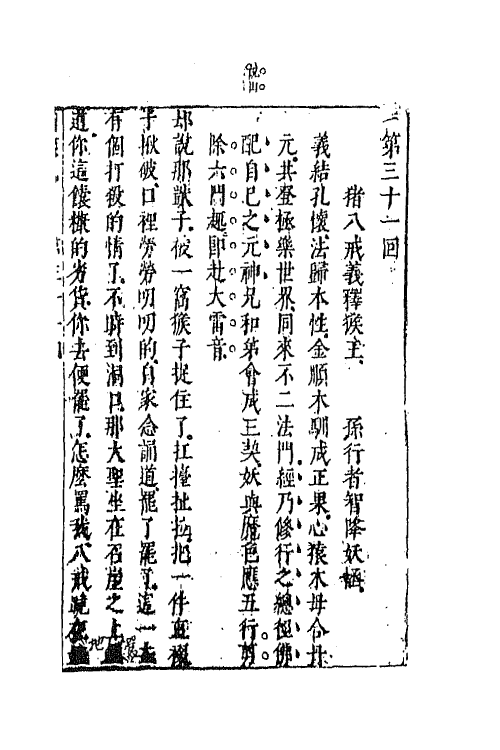 第三十一回
猪八戒義釋猴王　孫行者智降妖
義結孔懷法歸本性金順木馴成正果心猿木母合丹
元共登極樂世界同來不二法門經乃修行之總徑佛
配自己之元神兄和弟會成三契妖與魔色應五行剪
除六門趣即赴大雷音
却說那獃子被一窩猴子捉住了扛擡扯拉把一件直裰
子揪破口裡勞勞叨叨的自家念誦道罷了罷了這一去
有個打殺的情了不時到洞口那大聖坐在石崖之上罵
道你這饢糠的劣貨你去便罷了怎麽罵我八戒跪在地